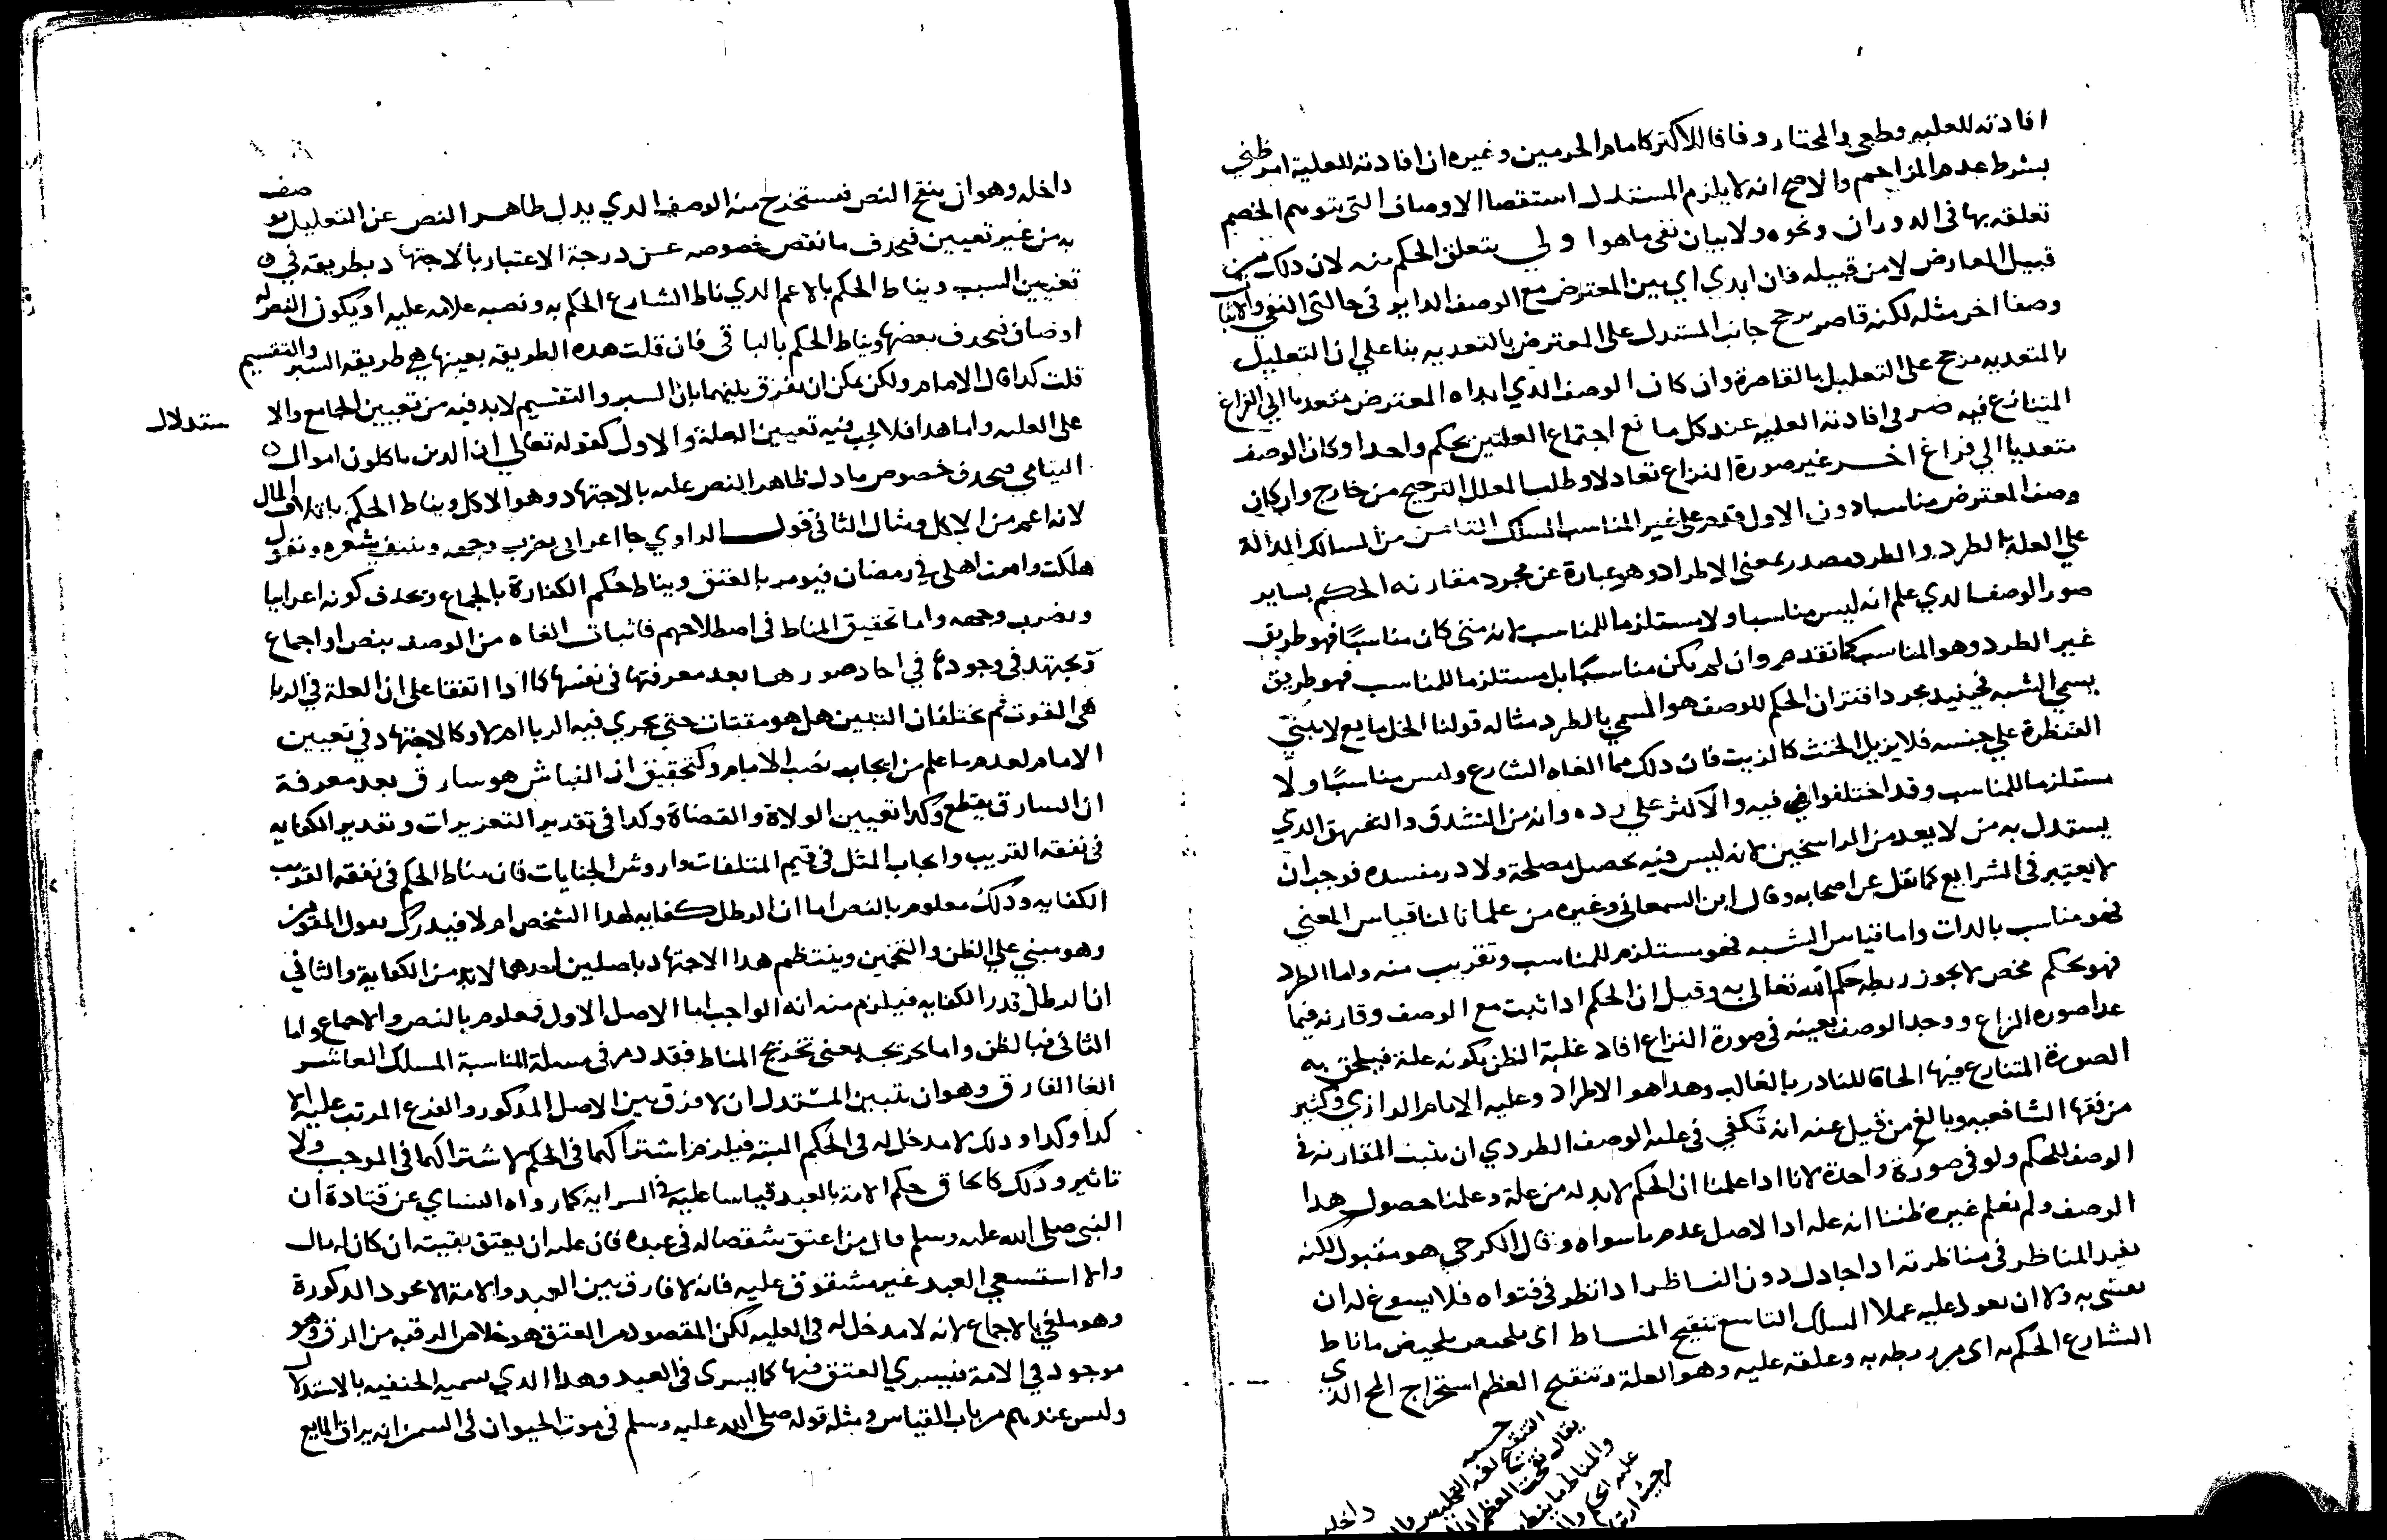 افادته للعلية قطعي والمختار وفاقا للاكثر كامام الحرمين وغيره ان افادته للعلية امر ظني
بشرط عدم المزاحم والاصح انه لا يلزم المستدل استقصا الاوصاف التي يتوهم الخصم
تعلقه بها في الدوران ونحوه ولا بيان نفي ما هو اولي بتعلق الحكم منه لان ذلك من
قبيل المعارض لا من قبيله فان ابدي اي بين المعترض مع الوصف الداير في حالتي النفي والاثبات
وصفا اخر مثله لكنه قاصر ترجح جانب المستدل على المعترض بالتعدية بنا علي ان التعليل
بالمتعدية مرجح على التعليل بالقاصرة وان كان الوصف الذي ابداه المعترض متعديا الي الفرع
المتنازع فيه ضر في افادته العلية عند كل مانع اجتماع العلتين بحكم واحد او كان الوصف
متعديا الي فراغ اخر غير صورة النزاع تعادلا وطلب المعلل الترجيح من خارج وان كان
وصف المعترض مناسبا دون الاول قدم على غير المناسب المسلك الثامن من المسالك الدالة
علي العلة الطرد والطرد مصدر بمعنى الاطراد وهو عبارة عن مجرد مقارنة الحكم بساير
صور الوصف الذي علم انه ليس مناسبا ولا مستلزما للمناسب لانه متى كان مناسبًا فهو طريق
غير الطرد وهو المناسب كما تقدم وان لم يكن مناسبًا بل مستلزما للمناسب فهو طريق
يسمي الشبه فحينيذ مجرد اقتران الحكم للوصف هو المسمي بالطرد مثاله قولنا الخل مايع لا تبني
القنطرة علي جنسه فلا يزيل الخبث كالزيت فان ذلك مما الغاه الشارع وليس مناسبًا ولا
مستلزما للمناسب وقد اختلفوا فيه والاكثر علي رده وانه من التشدق والتفيهق الذي
يستدل به من لا يعد من الراسخين لانه ليس فيه تحصيل مصلحة ولا درء مفسده فوجب ان
لا يعتبر في الشرايع كما نقل عن اصحابه وقال ابن السمعاني وغيره من علمائنا قياس المعني
فهو مناسب بالذات واما قياس الشبه فهو مستلزم للمناسب وتقريب منه واما الطرد
فهو تحكم محض لا يجوز ربط حكم الله تعالى به وقيل ان الحكم اذا ثبت مع الوصف وقارنه فيما
عدا صورة النزاع ووجد الوصف بعينه في صورة النزاع افاد غلبة الظن بكونه علة فيلحق به
الصورة المتنازع فيها الحاقا للنادر بالغالب وهذا هو الاطراد وعليه الامام الرازي وكثير
من فقها الشافعية وبالغ من قيل عنه انه تكفي في علية الوصف الطردي ان يثبت المقارنة في
الوصف للحكم ولو في صورة واحدة لانا اذا علمنا ان الحكم لا بد له من علة وعلمنا حصول هذا
الوصف ولم نعلم غيره ظننا انه علة اذ الاصل عدم ما سواه وقال الكرخي هو مقبول لكنه
يفيد المناظر في مناظرته اذا جادل دون الناظر اذا نظر في فتواه فلا يسوغ له ان
يفتي به ولا ان يعول عليه عملا المسلك التاسع تنقيح المناط اي تلخيص ما ناط
الشارع الحكم به اي من ربطه به وعلقه عليه وهو العلة وتنقيح العظم استخراج المخ الذي
داخله
التنقيح لغة التخليص
يقال نقحت العظم اذا
والمناط ما ينط
عليه الحكم
من حيث
داخله وهو ان ينقح النص فيستخرج منه الوصف الذي يدل ظاهر النص عن التعليل بو صف
به من غير تعيين فيحذف ما نقص خصوصه عن درجة الاعتبار بالاجتهاد بطريقه في
تعيين السبب ويناط الحكم بالاعم الذي ناط الشارع الحكم به ونصبه علامة عليه او يكون النص له
اوصاف فيحذف بعضها ويناط الحكم بالباقي فان قلت هذه الطريقة بعينها هي طريقة السبر والتقسيم
قلت كذا قال الامام ولكن يمكن ان يفرق بينهما بان السبر والتقسيم لا بد فيه من تعيين الجامع والا ستدلال
على العلية واما هذا فلا يجب فيه تعيين العلة والاول كقوله تعالي ان الذين ياكلون اموال
اليتامي فيحذف خصوص ما دل ظاهر النص عليه بالاجتهاد وهو الاكل ويناط الحكم باتلاف المال
لانه اعم من الاكل ومثال الثاني قول الراوي جا اعرابي يضرب وجهه وينتف شعره ويقول
هلكت واقعت اهلي في رمضان فيومر بالعتق ويناط حكم الكفارة بالجماع ويحذف كونه اعرابيا
ويضرب وجهه واما تحقيق المناط في اصطلاحهم فاثبات الغاه من الوصف بنص او اجماع
ويجتهد في وجودها في احاد صورها بعد معرفتها في نفسها كما اذا اتفقا على ان العلة في الربا
هي القوت ثم يختلفان التين هل هو مقتات حتى يجري فيه الربا ام لا وكالاجتهاد في تعيين
الامام بعد ما علم من ايجاب نصب الامام وكتحقيق ان النباش هو سارق بعد معرفة
ان السارق يقطع وكذا تعيين الولاة والقضاة وكذا في تقدير التعزيرات وتقدير الكفاية
في نفقة القريب وايجاب المثل في قيم المتلفات واروش الجنايات فان مناط الحكم في نفقة القريب
الكفاية وذلك معلوم بالنص اما ان الرطل كفاية لهذا الشخص ام لا فيدرك بقول المقومين
وهو مبني علي الظن والتخمين وينتظم هذا الاجتهاد باصلين احدهما لا بد من الكفاية والثاني
ان الرطل قدر الكفاية فيلزم منه انه الواجب اما الاصل الاول فمعلوم بالنص والاجماع واما
الثاني فبالظن واما تخريجه يعني تخريج المناط فقد مر في مسلة المناسبة المسلك العاشر
الغا الفارق وهو ان يتبين المستدل ان لا فرق بين الاصل المذكور والفرع المرتب عليه الا
كذا وكذا وذلك لا مدخل له في الحكم البتة فيلزم اشتراكهما في الحكم لاشتراكهما في الموجب ولا
تاثير وذلك كالحاق حكم الامة بالعبد قياسا عليه في السراية كما رواه النساي عن قتادة ان
النبي صلى الله عليه وسلم قال من اعتق شقصا له في عبده فان عليه ان يعتق بقيته ان كان له مال
والا استسعي العبد غير مشقوق عليه فانه لا فارق بين العبد والامة الا مجرد الذكورة
وهو ملغي بالاجماع لانه لا مدخل له في العلية لكن المقصود من العتق هو خلاص الرقبة من الرق وهو
موجود في الامة فيسري العتق فيها كما يسرى في العبد وهذا الذي يسميه الحنفيه بالاستدلال
وليس عندهم من باب القياس ومثله قوله صلى الله عليه وسلم في موت الحيوان في السمن انه يراق المايع